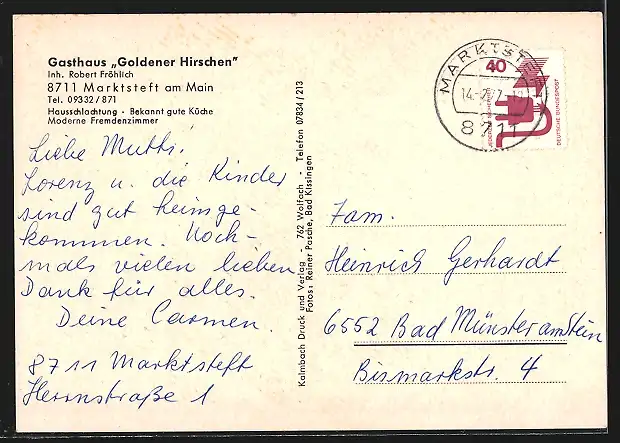 Gasthaus „Goldener Hirschen"
Inh. Robert Fröhlich
8711 Marktsteft am Main
Tel. 09332/871
Hausschlachtung · Bekannt gute Küche
Moderne Fremdenzimmer
Liebe Mutti.
Lorenz u. die Kinder
sind gut heimge-
kommen. Noch-
mals vielen lieben
Dank für alles.
Deine Carmen.
8711 Marktsteft
Herrnstraße 1
Kalmbach Druck und Verlag · 762 Wolfach · Telefon 07834/213
Fotos: Reiner Pasche, Bad Kissingen
MARKTSTEFT
8711
40
DEUTSCHE BUNDESPOST
Fam.
Heinrich Gerhardt
6552 Bad Münster am Stein
Bismarkstr. 4